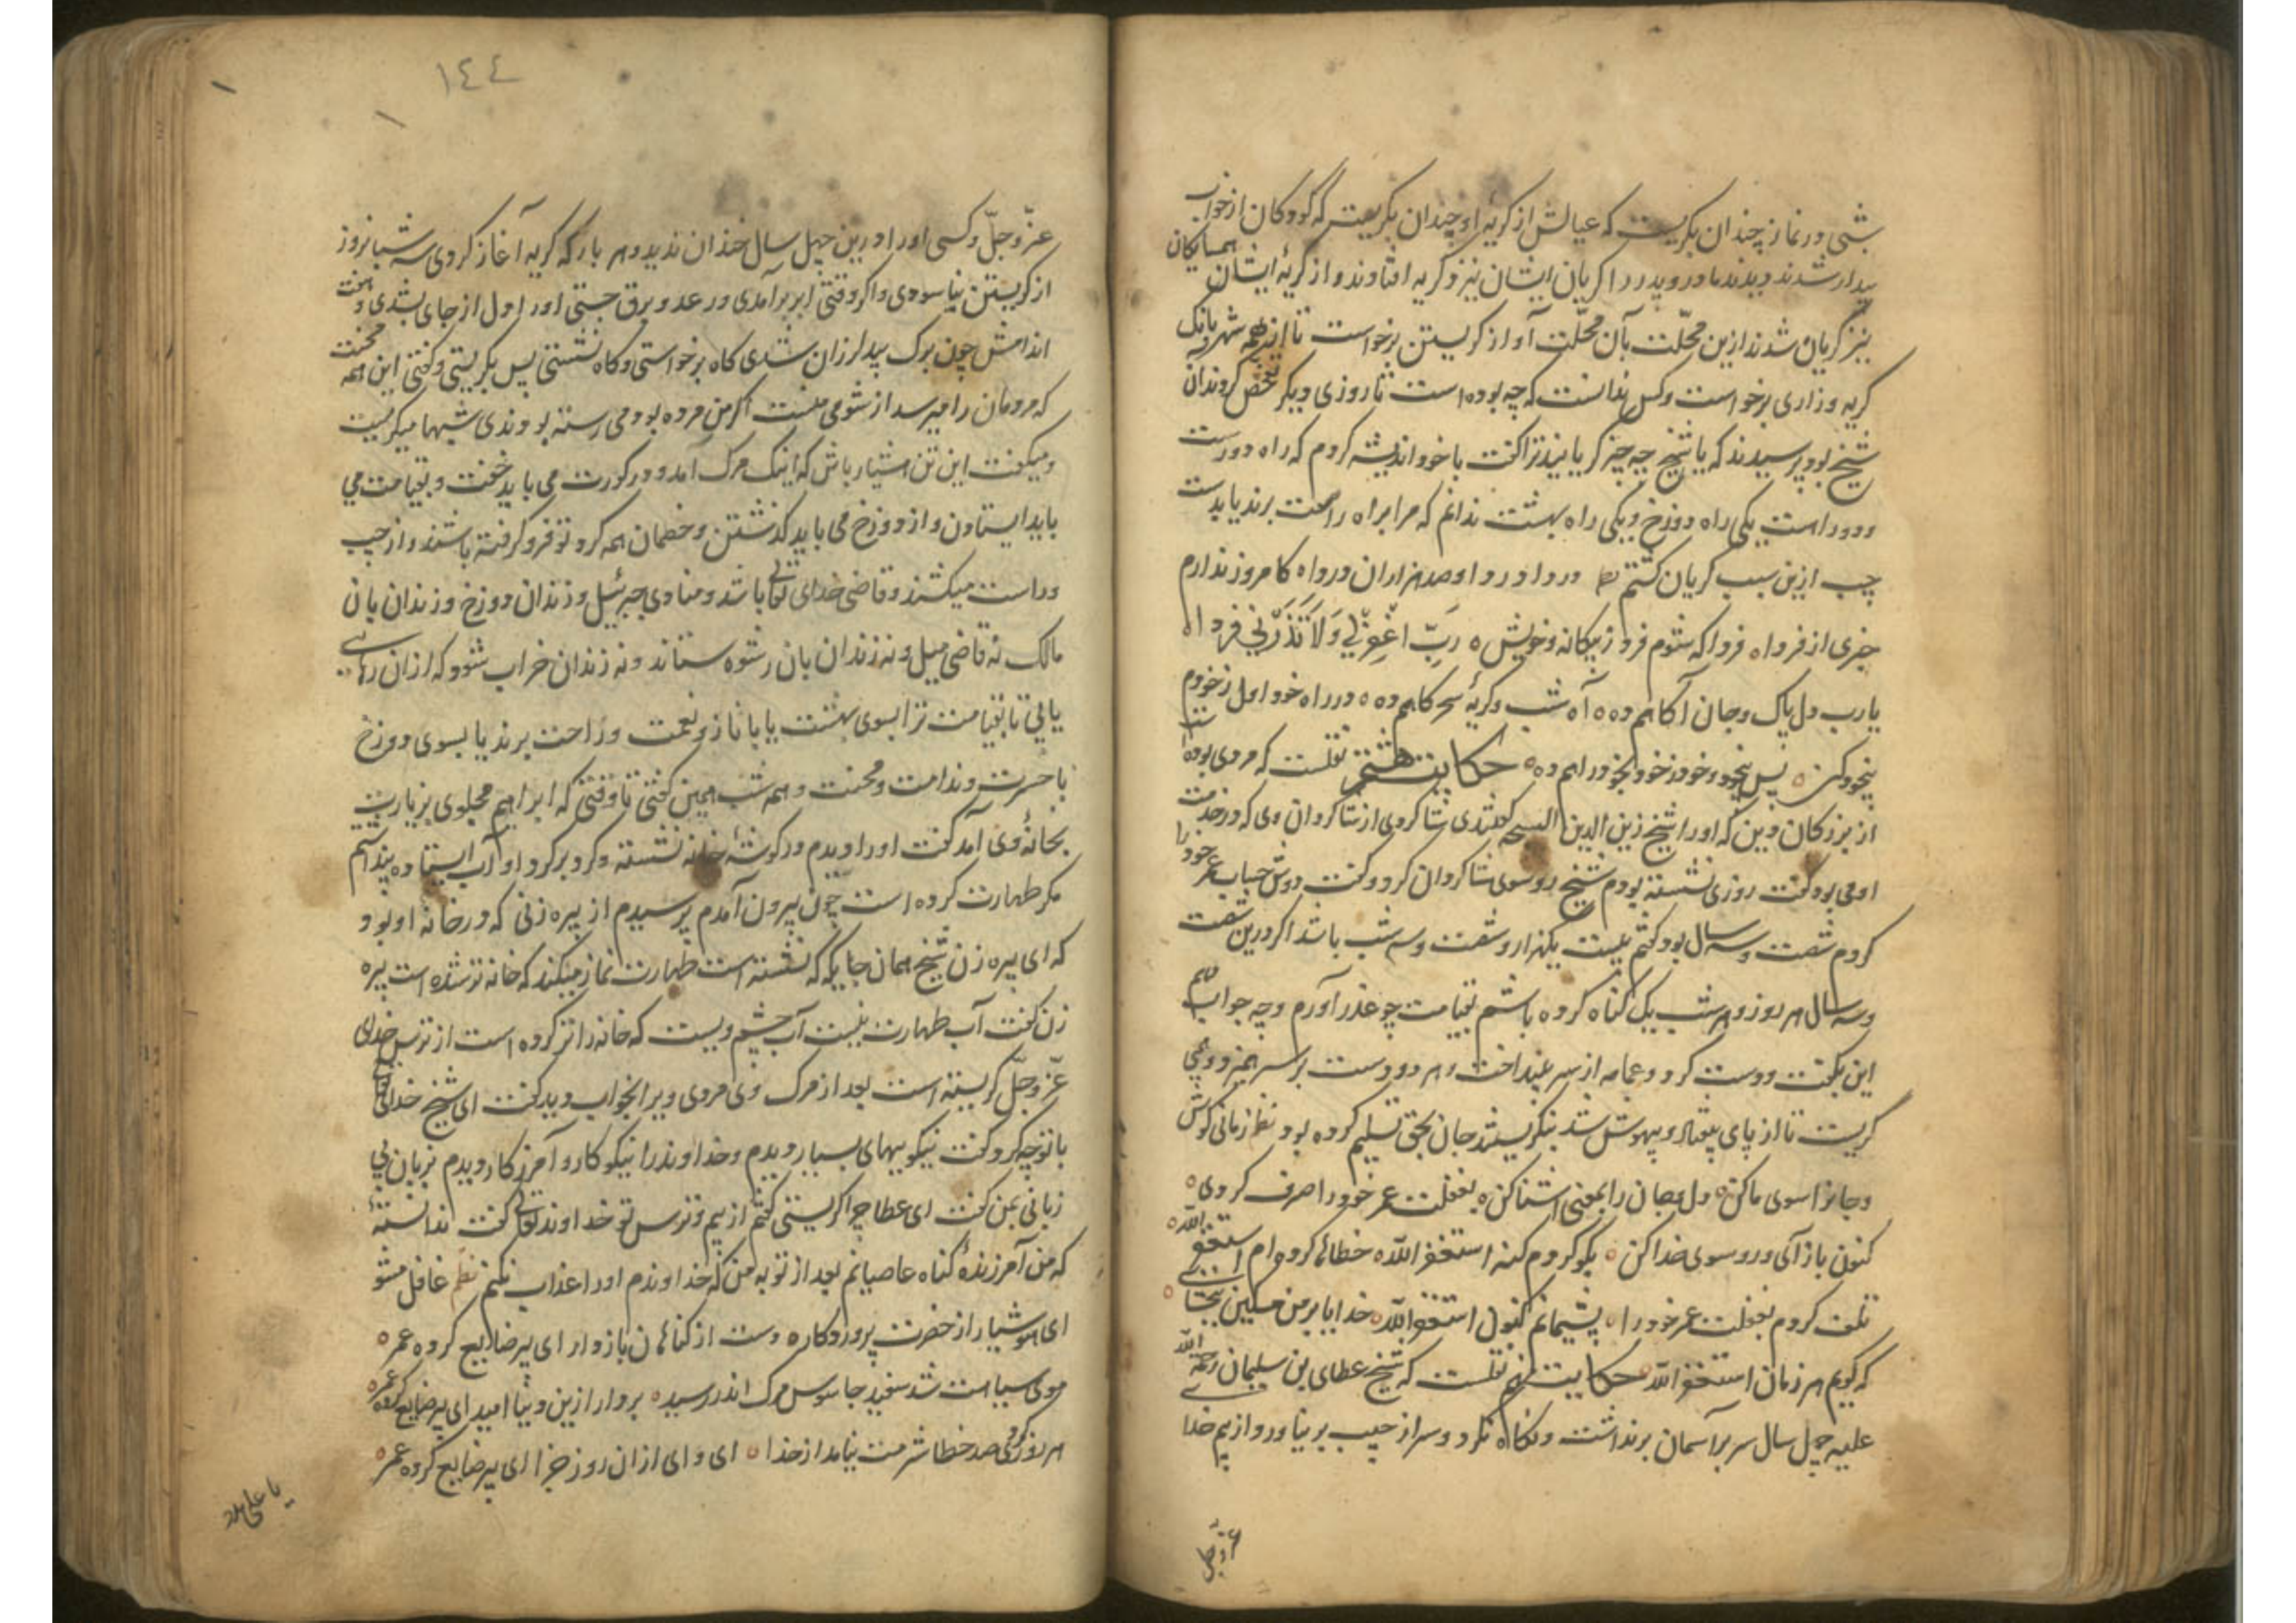 شبی در نماز چندان بکریست که عیالش از کریهٔ او چندان بکریست که کودکان از خواب
بیدار شدند دیدند مادر و پدر را کریان ایشان نیز در کریه افتادند و از کریهٔ ایشان همسایکان
نیز کریان شدند ازین محلّت بآن محلّت آواز کریستن برخواست تا از همه شهر بانک
کریه و زاری برخواست و کس ندانست که چه بوده است تا روزی دیکر تفحّص کردند آن
شیخ بود پرسیدند که یا شیخ چه چیز کریانید ترا کفت با خود اندیشه کردم که راه دورست
و دو راهست یکی راه دوزخ و یکی راه بهشت ندانم که مرا براه راست برند یا بدست
چپ ازین سبب کریان کشتم دردا و دردا و صد هزاران دردا ه کامروز ندارم
خبری از فردا ه فردا که شوم فرد ز بیکانه و خویش ه ربّ اغفرلی و لا تذرنی فردا ه
یارب دل پاک و جان آکاهم ده ه آه شب و کریهٔ سحرکاهم ده ه در راه خود اول ز خودم
بیخود کن ه پس بیخود و خود ز خود بخود راهم ده ه حکایت هشتم نقلست که مردی بوده است
از بزرکان دین که او را شیخ زین الدین کفتندی شاکردی از شاکردان وی که در خدمت
او می بود کفت روزی نشسته بودم شیخ رو سوی شاکردان کرد و کفت دوش حساب عمر خود را
کردم شصت و سه سال بود کفتم بیست یکهزار و شصت و سه شب باشد اکر درین شصت
و سه سال هر روز و هر شب یک کناه کرده باشم بقیامت چه عذر آورم و چه جواب دهم
این بکفت و دست کرد و عمامه از سر بینداخت و هر دو دست بر سر همیزد و می
کریست تا از پای بیفتاد و بیهوش شد بنکریستند جان بحق تسلیم کرده بود نظم زمانی کوش
و جانرا سوی ما کن ه دل و جان را بمعنی آشنا کن ه بغفلت عمر خود را صرف کردی ه
کنون باز آی و رو سوی خدا کن ه نکو کردم کنه استغفر الله ه خطاها کرده ام استغفر الله ه
تلف کردم بغفلت عمر خود را ه پشیمانم کنون استغفر الله ه خدایا بر من مسکین ببخشای ه
که کویم هر زمان استغفر الله ه حکایت نهم نقلست که شیخ عطای بن سلیمان رحمة الله
علیه چهل سال سر بر آسمان برنداشت و نکاه نکرد و سر از جیب بر نیاورد از بیم خدا
عزّ و جل
١٤٤
عزّ و جلّ و کسی او را درین چهل سال خندان ندید و هر بار که کریه آغاز کردی سه شبانروز
از کریستن نیاسودی و اکر وقتی ابر برآمدی و رعد و برق جستی او را دل از جای بشدی و هفت
اندامش چون برک بید لرزان شدی کاه برخواستی و کاه نشستی پس بکریستی و کفتی این همه محنت
که مردمان را میرسد از شومی منست اکر من مرده بودمی رسته بودندی شبها میکریست
و میکفت این تن هشیار باش که اینک مرک آمد و در کورت می باید خفت و بقیامت می
باید ایستادن و از دوزخ می باید کذشتن و خصمان همه کرد تو فرو کرفته باشند و از چپ
و راست میکشند و قاضی خدای تعالی باشد و منادی جبرئیل و زندان دوزخ و زندان بان
مالک نه قاضی میل و نه زندان بان رشوه ستاند و نه زندان خراب شود که از ان رهایی
یابی تا بقیامت ترا بسوی بهشت یا با ناز و نعمت و راحت برند یا بسوی دوزخ
با حسرت و ندامت و محنت و همه شب همین کفتی تا وقتی که ابراهیم محلوی بزیارت
بخانهٔ وی آمد کفت او را دیدم در کوشهٔ خانه نشسته و کرد بر کرد او آب ایستاده پنداشتم
مکر طهارت کرده است چون بیرون آمدم پرسیدم از پیره زنی که در خانهٔ او بود
که ای پیره زن شیخ همان جایکه که نشسته است طهارت نماز میکند که خانه تر شده است پیره
زن کفت آب طهارت نیست آب چشم ویست که خانه را تر کرده است از ترس خدای
عزّ و جلّ کریسته است بعد از مرک وی مردی ویرا بخواب دید کفت ای شیخ خدای تعالی
با تو چه کرد کفت نیکوییهای بسیار دیدم و خداوند را نیکو کار و آمرزکار دیدم بزبان بی
زبانی بمن کفت ای عطا چرا کریستی کفتم از بیم و ترس تو خداوند تعالی کفت ندانستهٔ
که من آمرزندهٔ کناه عاصیانم بعد از توبه من که خداوندم او را عذاب نکنم نظم غافل مشو
ای هوشیار از حضرت پروردکار ه دست از کناهان باز دار ای پیر ضایع کرده عمر ه
موی سیاهت شد سفید جاسوس مرک اندر رسید ه بردار ازین دنیا امید ای پیر ضایع کرده عمر ه
هر روز کردی صد خطا شرمت نیامد از خدا ه ای وای از ان روز جزا ای پیر ضایع کرده عمر ه
یا علی مدد